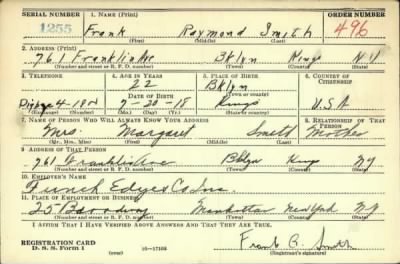 SERIAL NUMBER 1. NAME (Print) ORDER NUMBER
1255 Frank Raymond Smith 496
(First) (Middle) (Last)
2. ADDRESS (Print)
761 Franklin Ave Bklyn Kings N.Y
(Number and street or R. F. D. number) (Town) (County) (State)
3. TELEPHONE 4. AGE IN YEARS 5. PLACE OF BIRTH 6. COUNTRY OF CITIZENSHIP
22 Bklyn
DATE OF BIRTH (Town or county)
7-20-18 Kings U.S.A
(Exchange) (Number) (Mo.) (Day) (Yr.) (State or country)
7. NAME OF PERSON WHO WILL ALWAYS KNOW YOUR ADDRESS 8. RELATIONSHIP OF THAT PERSON
Mrs. Margaret Smith Mother
(Mr., Mrs., Miss) (First) (Middle) (Last)
9. ADDRESS OF THAT PERSON
761 Franklin Ave Bklyn Kings NY
(Number and street or R. F. D. number) (Town) (County) (State)
10. EMPLOYER'S NAME
Edyes Co Inc.
11. PLACE OF EMPLOYMENT OR BUSINESS
25 Broadway Manhattan New York NY
(Number and street or R. F. D. number) (Town) (County) (State)
I AFFIRM THAT I HAVE VERIFIED ABOVE ANSWERS AND THAT THEY ARE TRUE.
REGISTRATION CARD
D. S. S. Form 1 (over) 16-17105 Frank R. Smith
(Registrant's signature)